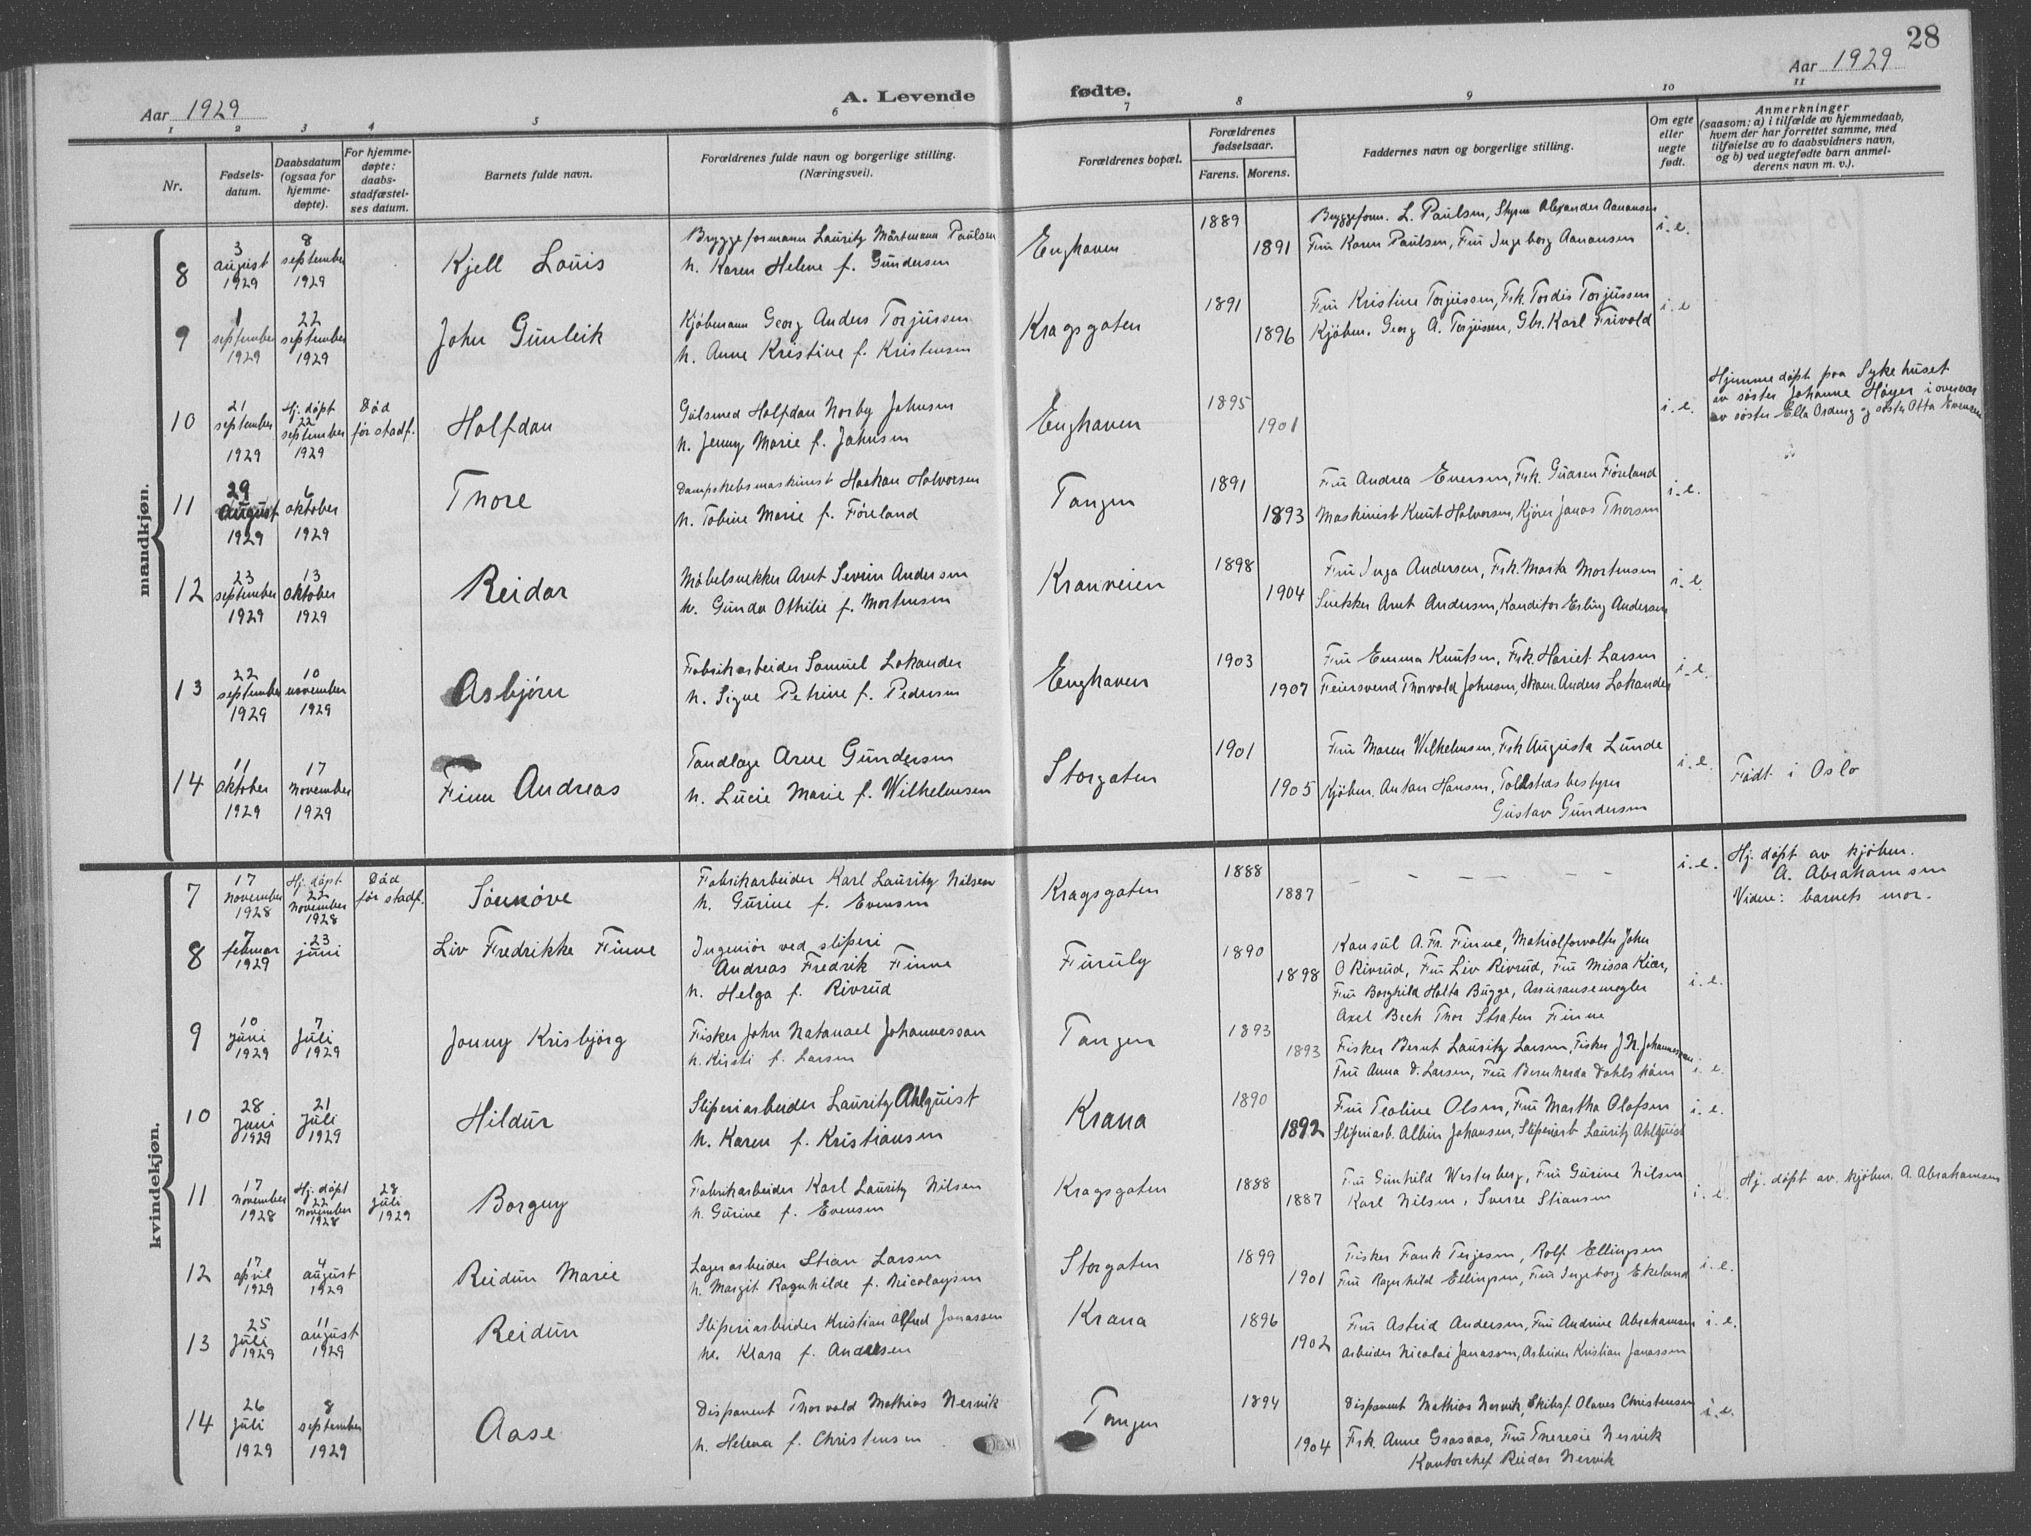 28
Aar 1929
A. Levende
fødte.
Aar 1929
1 2 3 4 5 6 7 8 9 10 11
Nr.
Fødsels-
datum.
Daabsdatum
(ogsaa for
hjemme-
døpte).
For hjemme-
døpte:
daabs-
stadfæstel-
ses datum.
Barnets fulde navn.
Forældrenes fulde navn og borgerlige stilling.
(Næringsvei).
Forældrenes bopæl.
Forældrenes
fødselsaar.
Farens. Morens.
Faddernes navn og borgerlige stilling.
Om egte
eller
uegte
født.
Anmerkninger
(saasom: a) i tilfælde av hjemmedaab,
hvem der har forrettet samme, med
tilføielse av to daabsvidners navn,
og b) ved uegtefødte barn anmel-
derens navn m. v.).
mandkjøn.
8
3
august
1929
8
september
1929
Kjell Louis
Bryggeformann Lauritz Mårtmann Paulsen
h. Karen Helene f. Gundersen
Enghaven
1889
1891
Bryggeform. L. Paulsen, Styrm Alexander Aanonsen
Fru Karen Paulsen, Fru Ingeborg Aanonsen
i.e.
9
1
september
1929
22
september
1929
John Gunleik
Kjøbmann Georg Anders Torjussen
h. Anne Kristine f. Kristensen
Kragsgaten
1891
1896
Fru Kristine Torjussen, Frk. Tordis Torjussen
Kjøbm. Georg A. Torjussen, Gbr. Karl Frivold
i.e
10
21
september
1929
Hj. døpt
22
september
1929
Død
før stadf.
Halfdan
Gulsmed Halfdan Norby Johnsen
h. Jenny Marie f. Johnsen
Enghaven
1895
1901
i.e.
Hjemmedøpt paa Sykehuset
av søster Johanne Høyer i overvær
av søster Ella Ordeng og søster Otta Evensen
11
29
August
1929
6
oktober
1929
Thore
Dampskibsmaskinist Haakon Halvorsen
h. Tobine Marie f. Føreland
Tangen
1891
1893
Fru Andrea Evensen, Frk. Gudrun Føreland
Maskinist Knut Halvorsen, Kjører Jonas Thorsen
i.e.
12
23
september
1929
13
oktober
1929
Reidar
Møbelsnekker Arnt Severin Andersen
h. Gunda Othilie f. Mortensen
Kranveien
1898
1904
Fru Inga Andersen, Frk. Marta Mortensen
Snekker Arnt Andersen, Konditor Erling Andersen
i.e.
13
22
september
1929
10
november
1929
Asbjørn
Fabrikarbeider Samuel Lokander
h. Signe Petrine f. Pedersen
Enghaven
1903
1907
Fru Emma Knutsen, Frk. Hariet Larsen
Feiersvend Thorvald Johnsen, Skom. Anders Lokander
i.e.
14
11
oktober
1929
17
November
1929
Finn Andreas
Tandlæge Arne Gundersen
h. Lucie Marie f. Wilhelmsen
Storgaten
1901
1905
Fru Maren Wilhelmsen, Frk Augusta Lunde
Kjøbm. Anton Hansen, Tollstedsbestyrer
Gustav Gundersen
i.e.
Født i Oslo
kvindekjøn.
7
17
November
1928
Hj. døpt
22
November
1928
Død
før stadf.
Sønnøve
Fabrikarbeider Karl Lauritz Nilsen
h. Gurine f. Evensen
Kragsgaten
1888
1887
– – – – – –
i.e.
Hj. døpt av kjøbm.
A. Abrahamsen
Videre: barnets mor.
8
7
februar
1929
23
juni
Liv Fredrikke Finne
Ingeniør ved sliperi
Andreas Fredrik Finne
h. Helga f. Rivrud
Furuly
1890
1898
Konsul A. Fr. Finne, Matrialforvalter John
O Rivrud, Fru Liv Rivrud, Fru Missa Kiær,
Fru Borghild Holta Bugge, Assuransemegler
Axel Bech Thor Straten Finne
i.e.
9
10
Juni
1929
7
Juli
1929
Jonny Krisbjørg
Fisker John Natanael Johannesson
h. Kirsti f. Larsen
Tangen
1893
1893
Fisker Bernt Lauritz Larsen, Fisker J.N. Johannesson
Fru Anna D. Larsen, Fru Bernharda Dahlskám
i.e.
10
28
Juni
1929
21
Juli
1929
Hildur
Sliperiarbeider Lauritz Ahlquist
h. Karen f. Kristiansen
Krana
1890
1892
Fru Teoline Olsen, Fru Martha Olofsen
Sliperiarb. Albin Johansen, Sliperiarb Lauritz Ahlquist
i.e.
11
17
November
1928
Hj. døpt
22
November
1928
28
Juli
1929
Borgny
Fabrikarbeider Karl Lauritz Nilsen
h. Gurine f. Evensen
Kragsgaten
1888
1887
Fru Gunhild Westerberg, Fru Gurine Nilsen
Karl Nilsen, Sverre Stiansen
i.e.
Hj. døpt av. kjøbm. A. Abrahamsen
12
17
april
1929
4
august
1929
Reidun Marie
Lagerarbeider Stian Larsen
h. Margit Ragnhilde f. Nicolaysen
Storgaten
1899
1901
Fisker Fank Terjesen, Rolf Ellingsen
Fru Ragnhild Ellingsen, Fru Ingeborg Ekeland
i.e.
13
25
Juli
1929
11
august
1929
Reidun
Sliperiarbeider Kristian Alfred Jonassen
h. Klara f. Andersen
Krana
1896
1902
Fru Astrid Andersen, Fru Andrine Abrahamsen
Arbeider Nicolai Jonassen, Arbeider Kristian Jonassen
i.e.
14
26
Juli
1929
8
september
1929
Aase
Disponent Thorvald Mathias Nervik
h. Helena f. Christensen
Tangen
1894
1904
Disponent Mathias Nervik, Skibsf. Olaves Christensen
Frk. Anne Graaaas, Fru Theresie Nervik
Kontorchef Reidar Nervik
i.e.